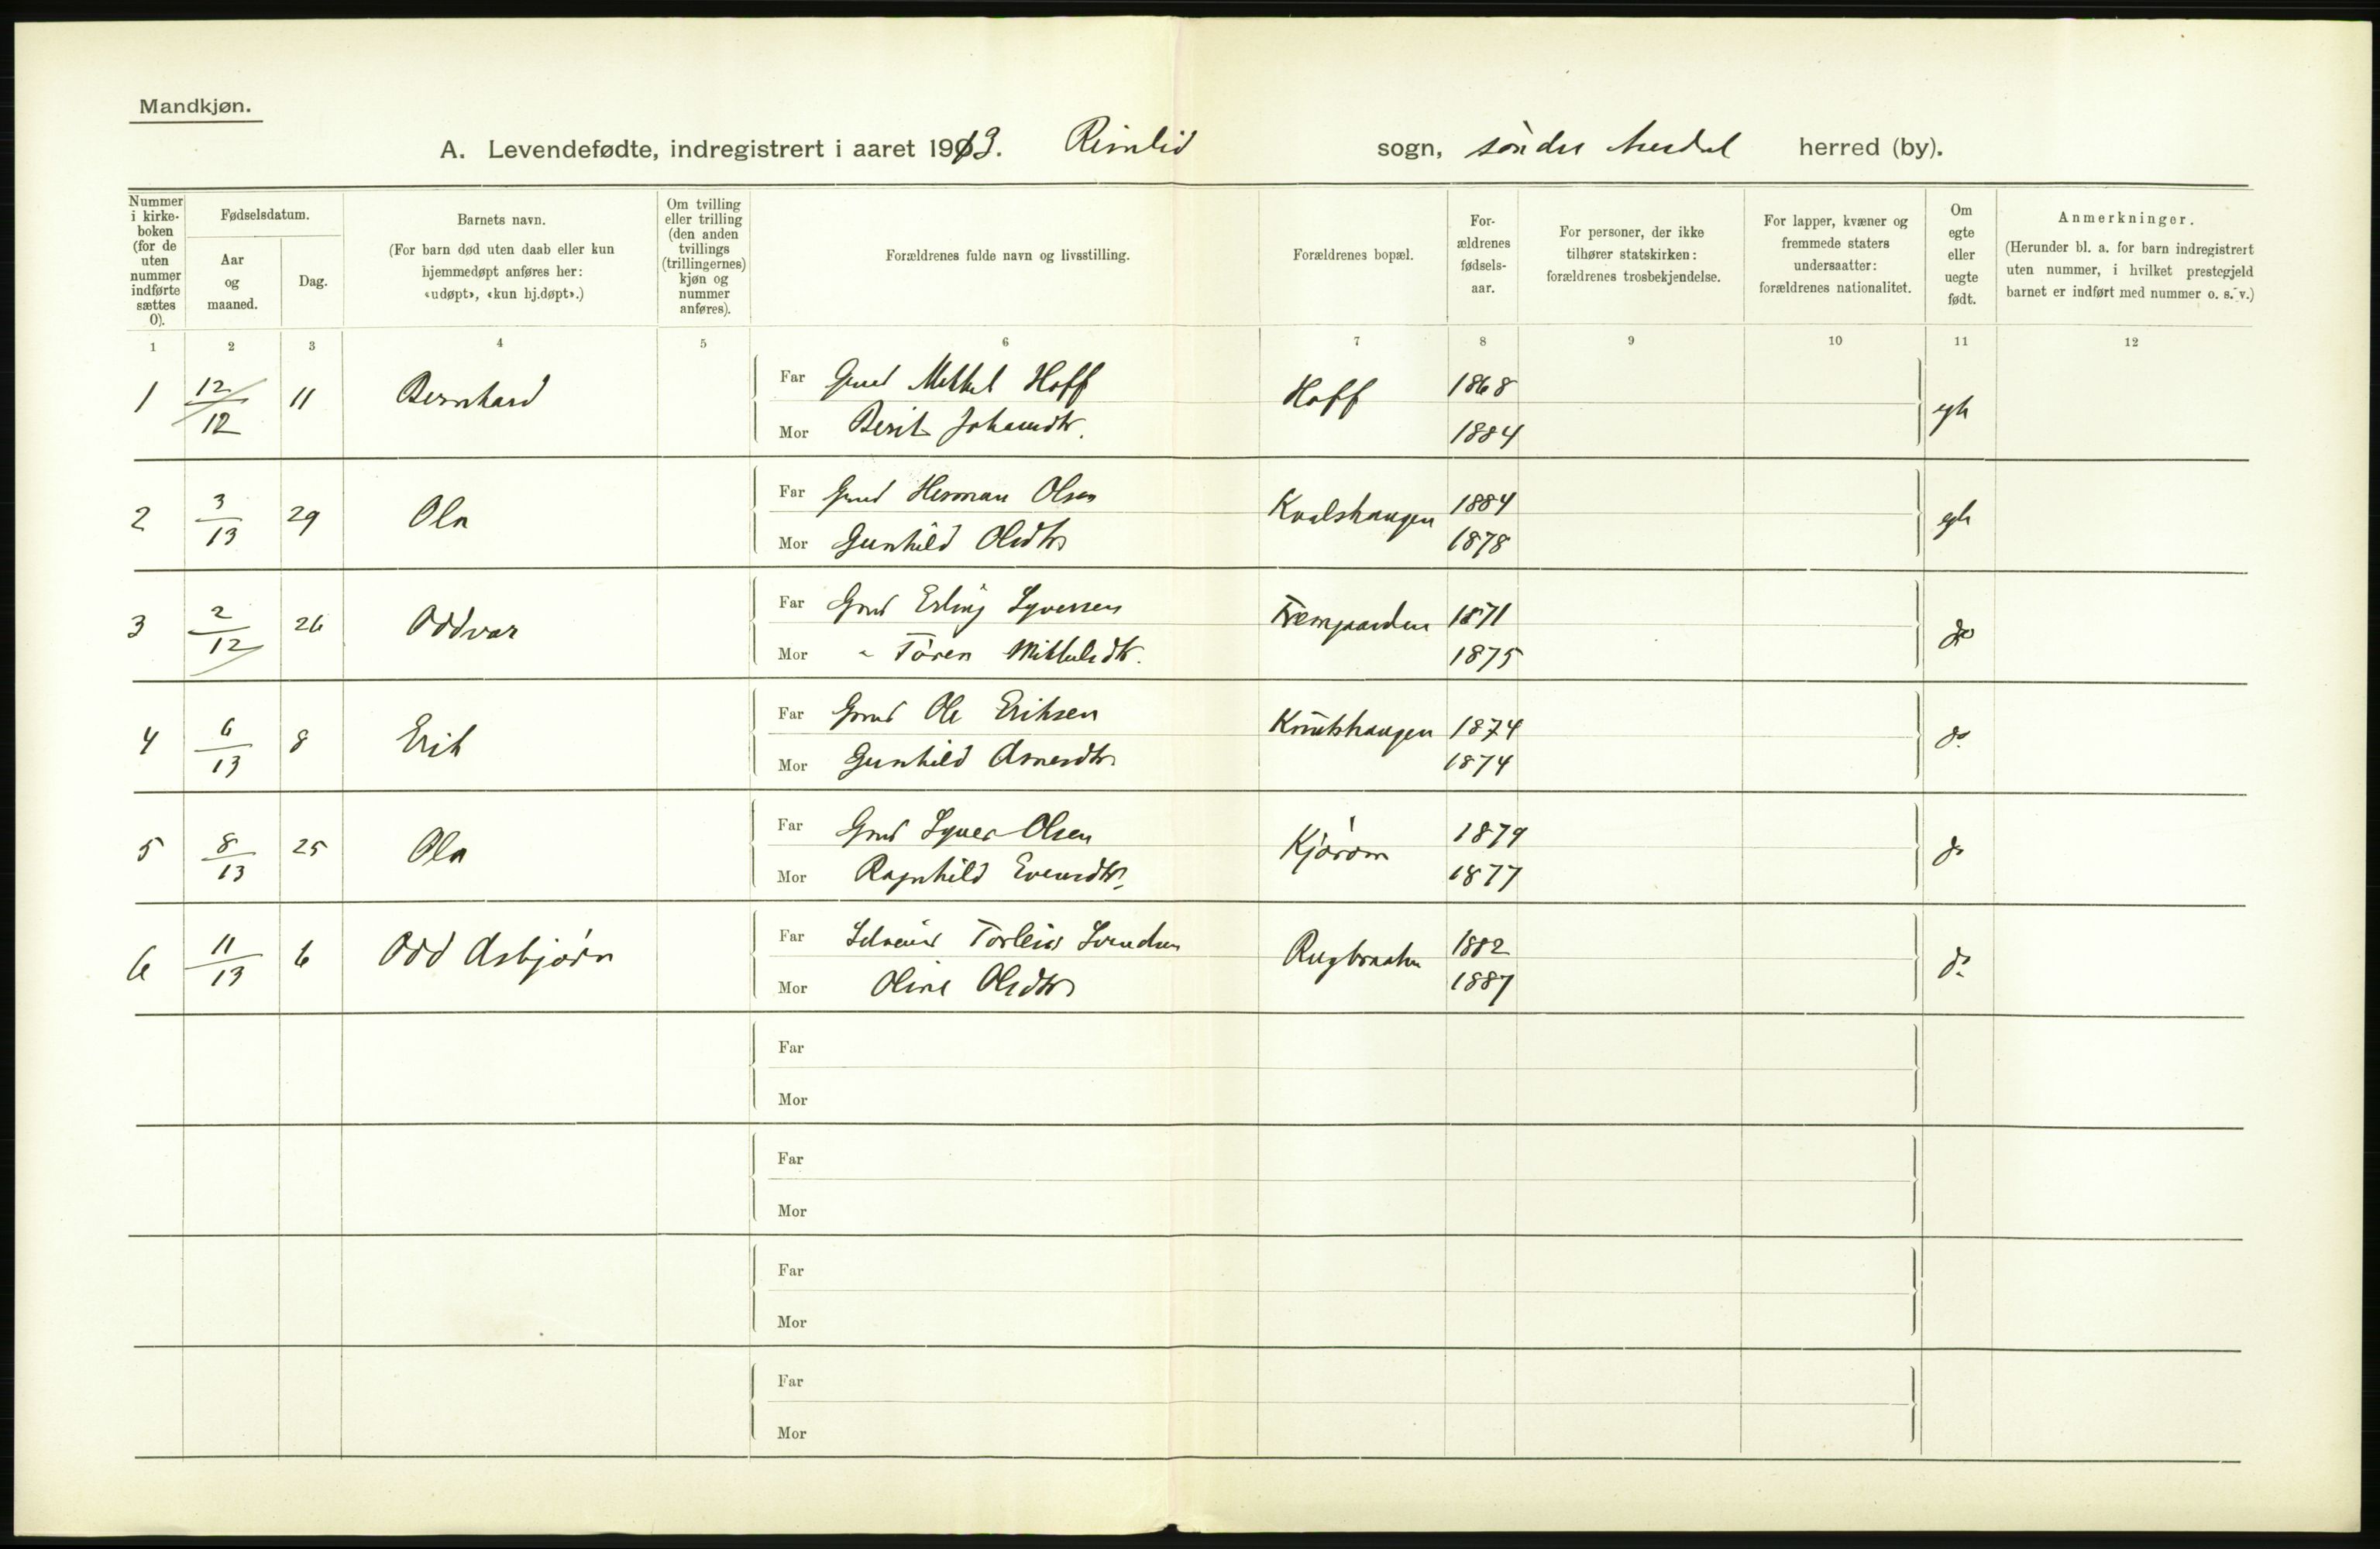 Mandkjøn.
A. Levendefødte, indregistrert i aaret 1913. Rimlid sogn, søndre Aurdal herred (by).
Nummer i kirke-boken (for de uten nummer indførte sættes 0).
Fødselsdatum.
Aar og maaned.
Dag.
Barnets navn.
(For barn død uten daab eller kun hjemmedøpt anføres her: «udøpt», «kun hj.døpt».)
Om tvilling eller trilling (den anden tvillings (trillingernes) kjøn og nummer anføres).
Forældrenes fulde navn og livsstilling.
Forældrenes bopæl.
For-ældrenes fødsels-aar.
For personer, der ikke tilhører statskirken: forældrenes trosbekjendelse.
For lapper, kvæner og fremmede staters undersaatter: forældrenes nationalitet.
Om egte eller uegte født.
Anmerkninger.
(Herunder bl. a. for barn indregistrert uten nummer, i hvilket prestegjeld barnet er indført med nummer o. s. v.)
1 2 3 4 5 6 7 8 9 10 11 12
1 12/12 11 Bernhard Far Gmd Mikkel Hoff Hoff 1868 egte
Mor Berit Johansdtr. 1884
2 3/13 29 Ola Far Gmd Herman Olsen Kvalshaugen 1884 egte
Mor Gunhild Olsdtr 1878
3 2/12 26 Oddvar Far Gmd Erling Syversen Fremgaarden 1871 do
Mor - Tören Mikkelsdtr. 1875
4 6/13 8 Erik Far Gmd Ole Eriksen Knutshaugen 1874 do
Mor Gunhild Arnesdtr 1874
5 8/13 25 Ola Far Gmd Syver Olsen Kjörom 1879 do
Mor Ragnhild Evensdtr. 1877
6 11/13 6 Odd Asbjörn Far Torleiv Svendsen Rugbraaten 1882 do
Mor Oline Olsdtr 1887
Far
Mor
Far
Mor
Far
Mor
Far
Mor